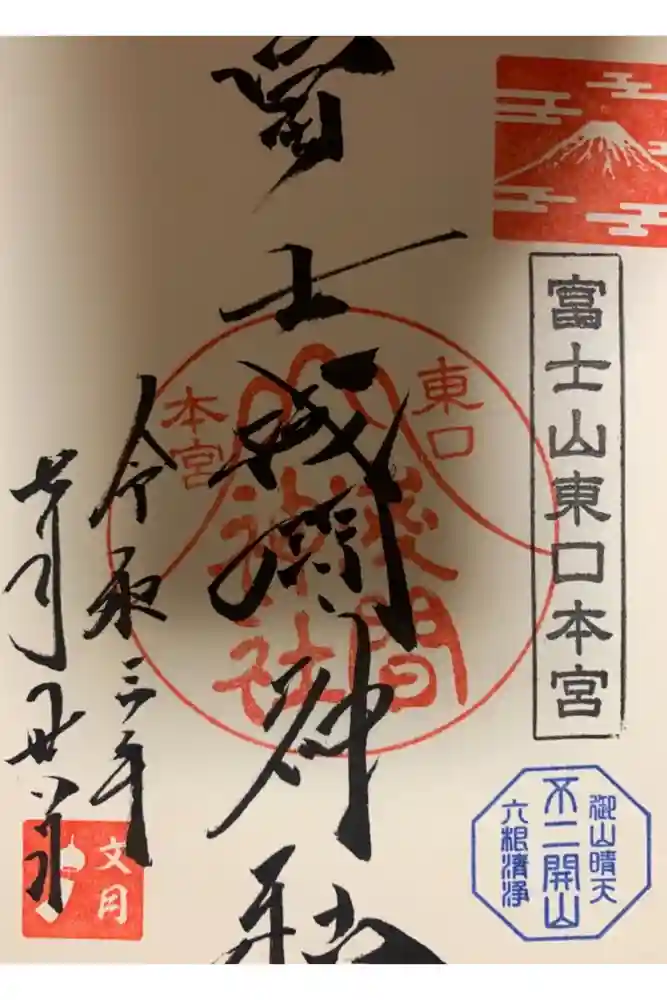 富士山東口本宮
御山晴天
不二開山
六根清浄
東口
本宮
浅間
神社
冨士浅間神社
令和三年
七月廿八日
文月